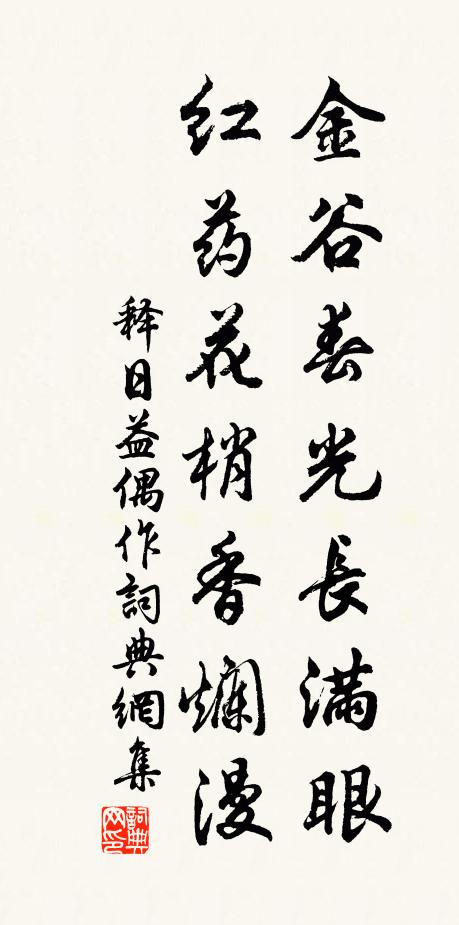 金谷春光長满眼
红药花梢香爛漫
释日益偶作詞典網集
詞典网印